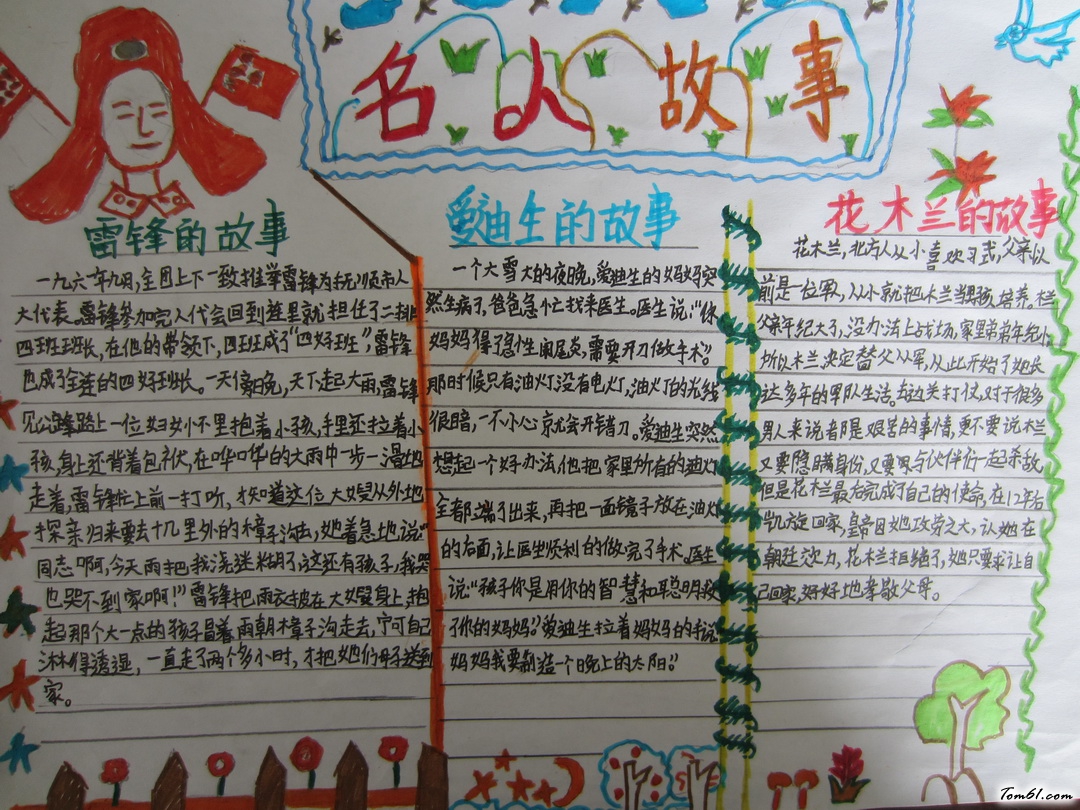 名人故事
雷锋的故事
一九六一年九月,全团上下一致推举雷锋为抚顺市人
大代表。雷锋参加完人代会回到连里就担任了二排
四班班长,在他的带领下,四班成了“四好班”,雷锋
也成了全连的四好班长。一天傍晚,天下起大雨,雷锋
见公路上一位妇女怀里抱着小孩,手里还拉着小
孩,身上还背着包袱,在哗哗的大雨中一步一滑地
走着,雷锋忙上前一打听,才知道这位大嫂从外地
探亲归来要去十几里外的樟子沟去,她着急地说“
同志啊,今天雨把我浇迷糊了,这还有孩子,我哭
也哭不到家啊!”雷锋把雨衣披在大嫂身上,抱
起那个大一点的孩子冒着雨朝樟子沟走去,宁可自己
淋得透湿,一直走了两个多小时,才把她们母子送到
家。
爱迪生的故事
一个大雪天的夜晚,爱迪生的妈妈突
然生病了,爸爸急忙找来医生。医生说:“你
妈妈得了急性阑尾炎,需要开刀做手术。”
那时候只有油灯没有电灯,油灯的光线
很暗,一不小心就会开错刀。爱迪生突然
想起一个好办法,他把家里所有的油灯
全都端了出来,再把一面镜子放在油灯
的后面,让医生顺利的做完了手术。医生
说:“孩子你是用你的智慧和聪明救
了你的妈妈。”爱迪生拉着妈妈的手说
妈妈我要制造一个晚上的太阳。”
花木兰的故事
花木兰,北方人从小喜欢习武,父亲以
前是一位军人,从小就把木兰当男孩培养。木兰
父亲年纪大了,没办法上战场,家里弟弟年纪小
所以木兰决定替父从军,从此开始了她长
达多年的军队生活。去边关打仗,对于很多
男人来说都是艰苦的事情,更不要说木兰
又要隐瞒身份,又要与伙伴们一起杀敌
但是花木兰最后完成了自己的使命,在12年后
凯旋回家,皇帝因她功劳之大,认她在
朝廷效力,花木兰拒绝了,她只要求让自
己回家,好好地孝敬父母。
Tom61.com